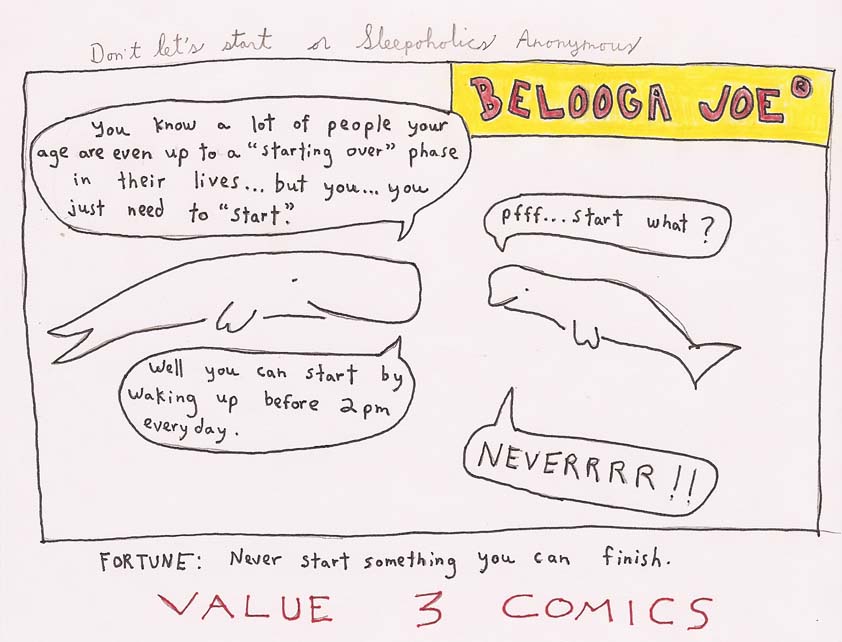 Don't let's start or Sleepoholics Anonymous
BELOOGA JOE®
You know a lot of people your
age are even up to a "starting over" phase
in their lives... but you... you
just need to "start."
pfff... start what?
Well you can start by
waking up before 2pm
everyday.
NEVERRRR!!
FORTUNE: Never start something you can finish.
VALUE 3 COMICS